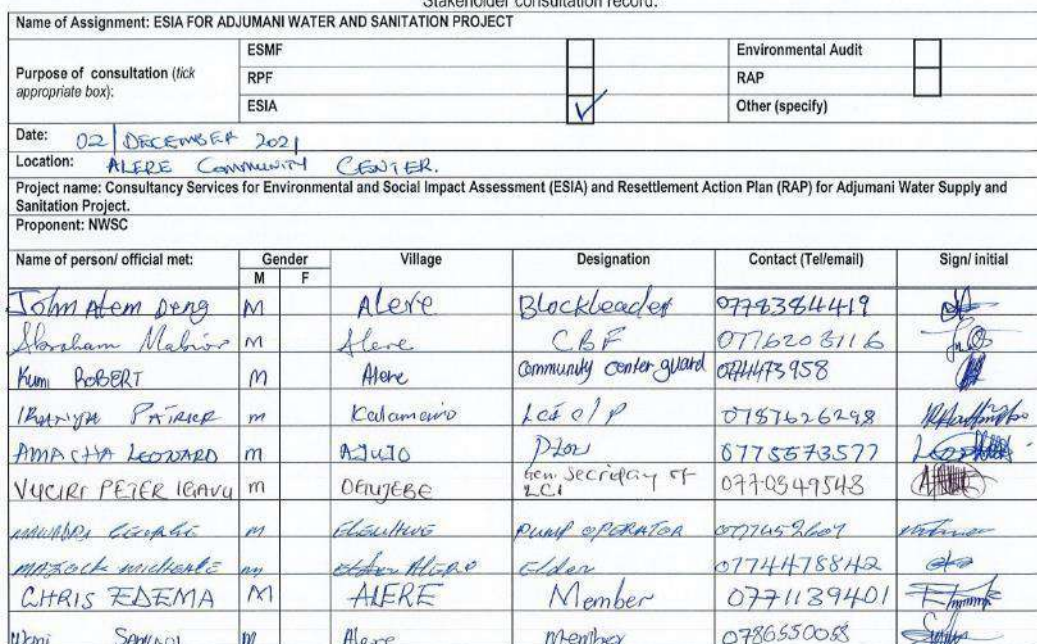 Stakeholder consultation record.
Name of Assignment: ESIA FOR ADJUMANI WATER AND SANITATION PROJECT
Purpose of consultation (tick appropriate box):
ESMF Environmental Audit
RPF RAP
ESIA ✓ Other (specify)
Date: 02 DECEMBER 2021
Location: ALERE COMMUNITY CENTER.
Project name: Consultancy Services for Environmental and Social Impact Assessment (ESIA) and Resettlement Action Plan (RAP) for Adjumani Water Supply and
Sanitation Project.
Proponent: NWSC
Name of person/ official met: Gender Village Designation Contact (Tel/email) Sign/ initial
M F
John Atem Deng M Alere Blockleader 0778384419
Abraham Mabior M Alere CBF 0776203116
Kumi ROBERT M Alere Community center guard
PATRICK M 0787626298
AMACHA LEONARD M 0775573577
VUCIRI PETER M Gen. Secretary of LC1 0770349543
M PUMP OPERATOR
M Elder 0774478842
CHRIS EDEMA M ALERE Member 0771139401
M Alere Member 0786550058